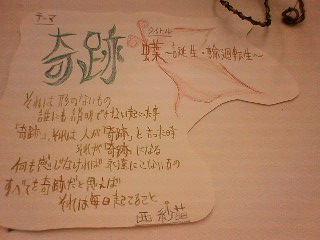 テーマ
奇跡
タイトル
蝶 〜誕生・輪廻転生〜
それは形のないもの
誰にも説明できない出来事
「奇跡」、それは人が「奇跡」と言った時
それが「奇跡」になる
何も感じなければ永遠にこないもの
すべてを奇跡だと思えば
それは毎日起こってること
西 紗苗